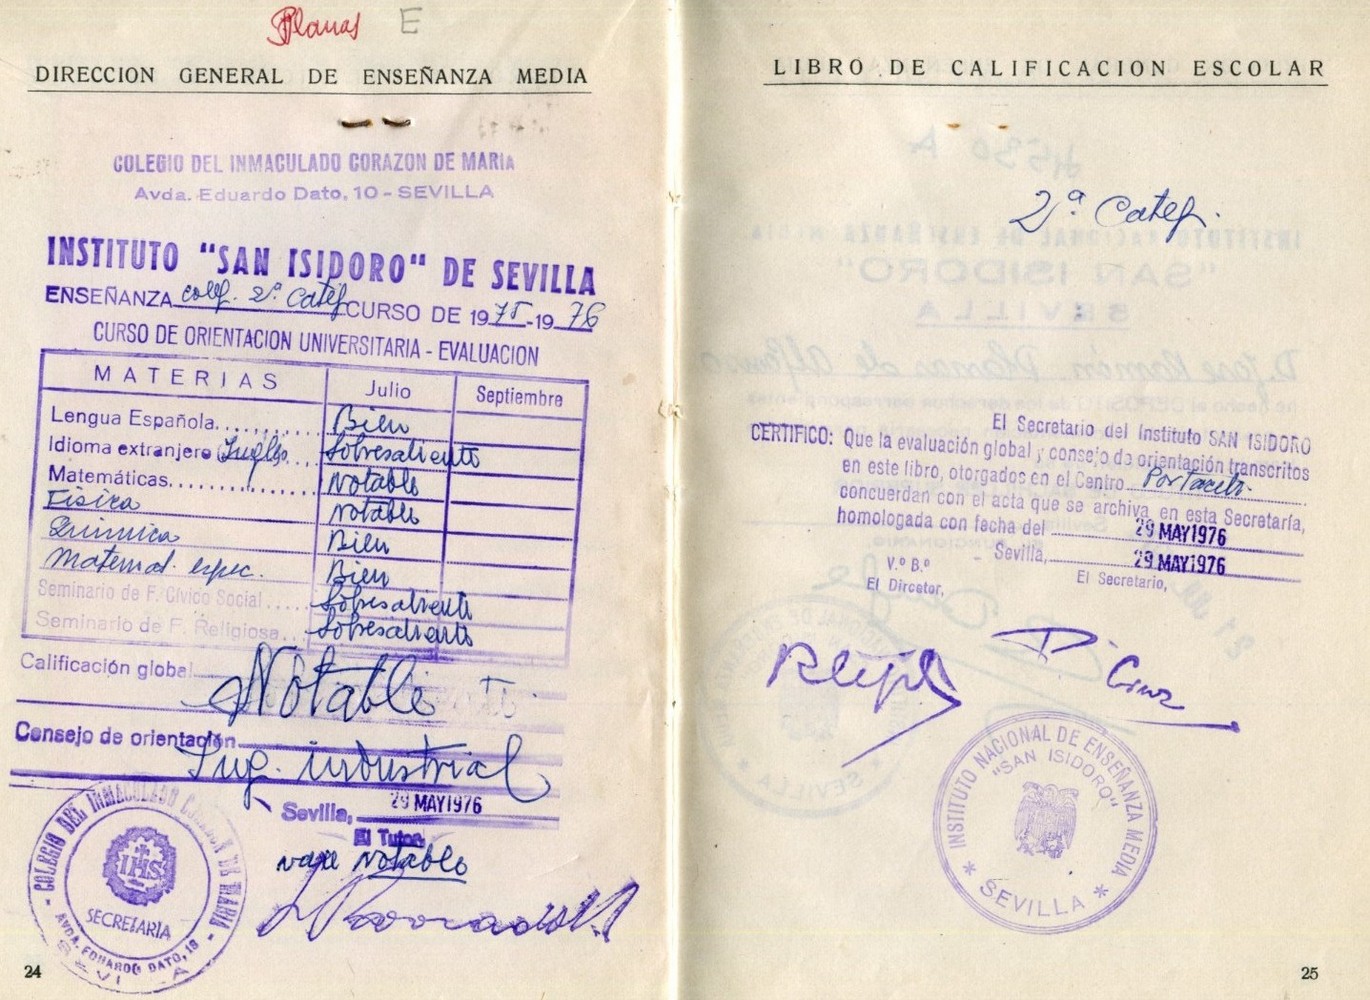 Planas E
DIRECCION GENERAL DE ENSEÑANZA MEDIA
COLEGIO DEL INMACULADO CORAZON DE MARIA
Avda. Eduardo Dato, 10 - SEVILLA
INSTITUTO "SAN ISIDORO" DE SEVILLA
ENSEÑANZA coleg. 2ª Categ CURSO DE 1975-1976
CURSO DE ORIENTACION UNIVERSITARIA - EVALUACION
MATERIAS Julio Septiembre
Lengua Española........ Bien
Idioma extranjero Inglés... Sobresaliente
Matemáticas............ Notable
Física Notable
Química Bien
Matemat. espec. Bien
Seminario de F. Cívico Social..... Sobresaliente
Seminario de F. Religiosa... Sobresaliente
Calificación global Notable
Consejo de orientación Ing. industrial
Sevilla, 29 MAY 1976
El Tutor
vale Notable
COLEGIO DEL INMACULADO CORAZON DE MARIA
IHS
SECRETARIA
AVDA. EDUARDO DATO, 10
SEVILLA
24
LIBRO DE CALIFICACION ESCOLAR
2ª Categ.
El Secretario del Instituto SAN ISIDORO
CERTIFICO: Que la evaluación global y consejo de orientación transcritos
en este libro, otorgados en el Centro Portaceli
concuerdan con el acta que se archiva en esta Secretaría,
homologada con fecha del 29 MAY 1976
Sevilla, 29 MAY 1976
V.º B.º
El Director, El Secretario,
INSTITUTO NACIONAL DE ENSEÑANZA MEDIA
"SAN ISIDORO"
* SEVILLA *
25